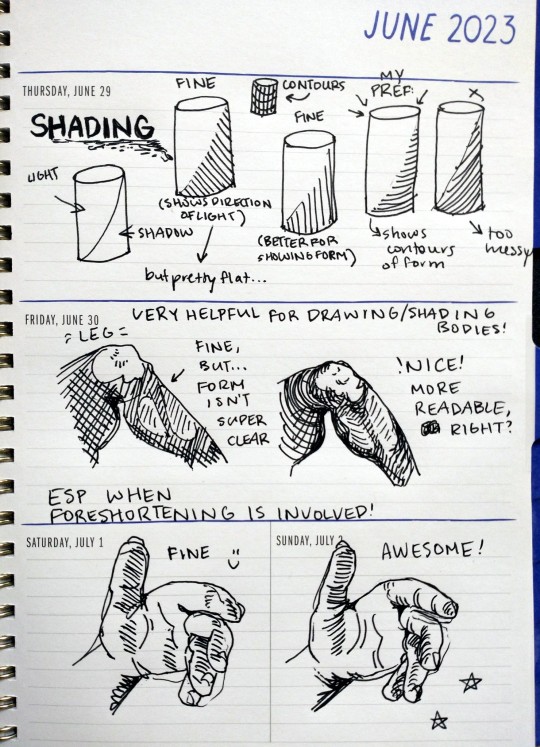 JUNE 2023
THURSDAY, JUNE 29
SHADING
LIGHT
SHADOW
FINE
(SHOWS DIRECTION
OF LIGHT)
but pretty flat...
CONTOURS
FINE
(BETTER FOR
SHOWING FORM)
MY
PREF:
shows
contours
of form
X
too
messy
FRIDAY, JUNE 30
VERY HELPFUL FOR DRAWING/SHADING
BODIES!
LEG
FINE,
BUT...
FORM
ISN'T
SUPER
CLEAR
!NICE!
MORE
READABLE,
RIGHT?
ESP WHEN
FORESHORTENING IS INVOLVED!
SATURDAY, JULY 1
FINE
SUNDAY, JULY 2
AWESOME!